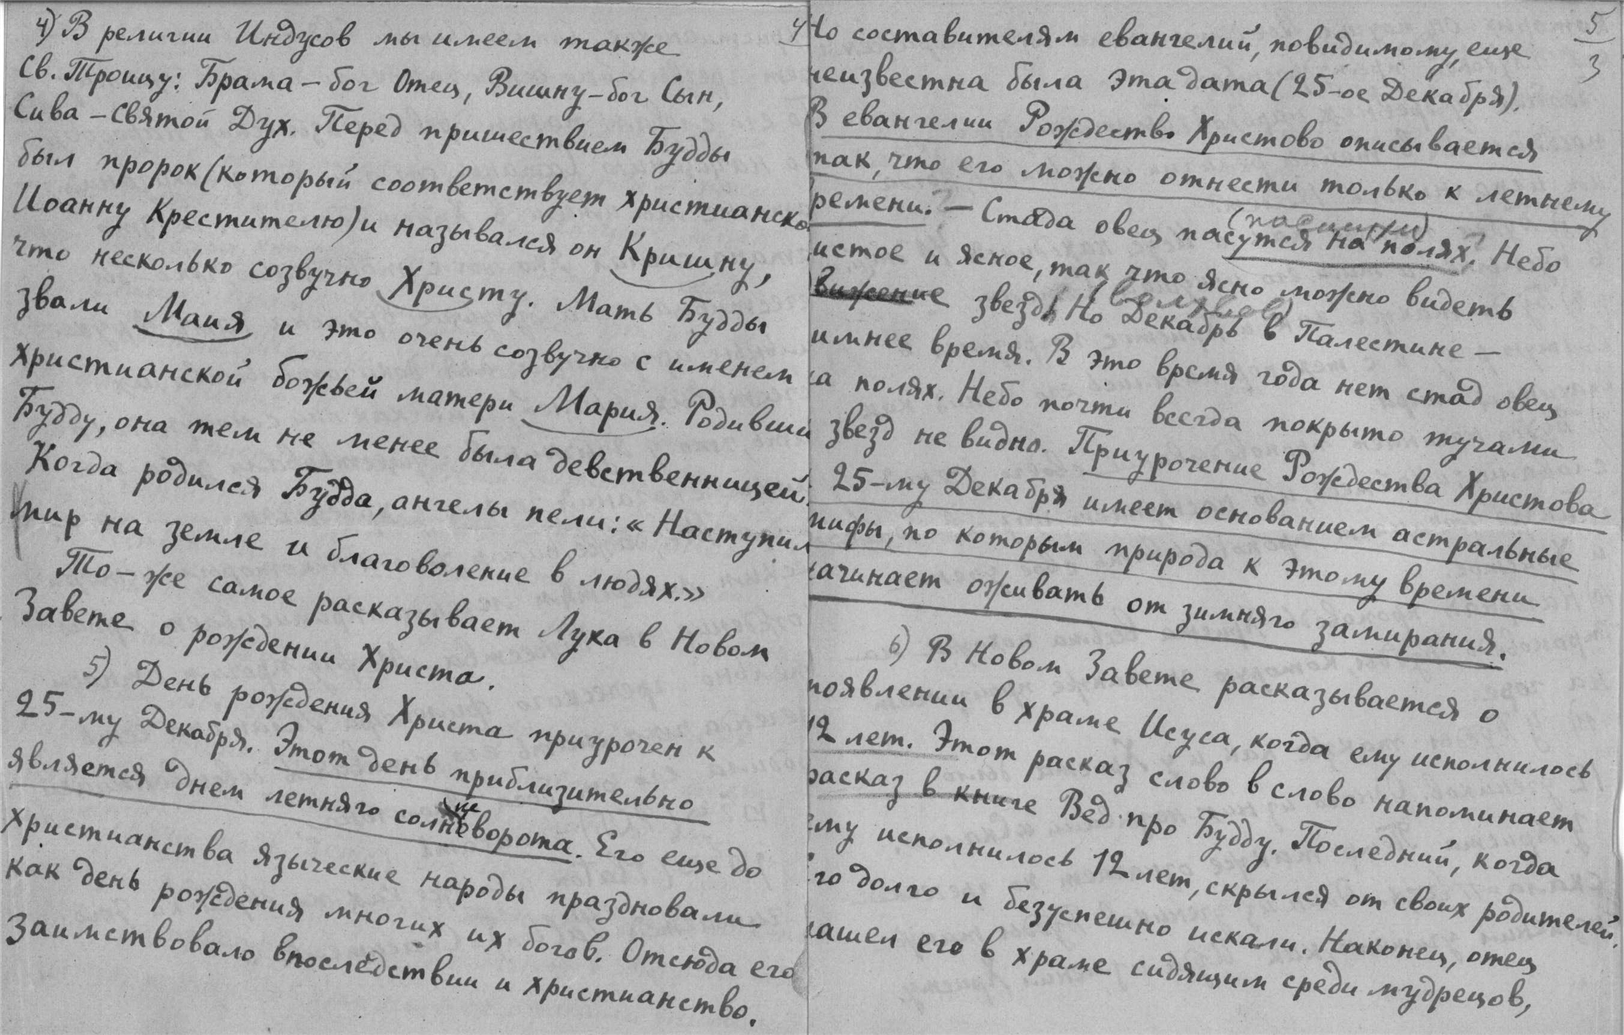 4) В религии Индусов мы имеем также
Св. Троицу: Брама – бог Отец, Вишну – бог Сын,
Сива – Святой Дух. Перед пришествием Будды
был пророк (который соответствует христианско
Иоанну Крестителю) и назывался он Кришну,
что несколько созвучно Христу. Мать Будды
звали Маия и это очень созвучно с именем
христианской божьей матери Мария. Родивши
Будду, она тем не менее была девственницей.
Когда родился Будда, ангелы пели: «Наступил
мир на земле и благоволение в людях.»
То-же самое расказывает Лука в Новом
Завете о рождении Христа.
5) День рождения Христа приурочен к
25-му Декабря. Этот день приблизительно
является днем летняго солнцеворота. Его еще до
христианства языческие народы праздновали
как день рождения многих их богов. Отсюда его
заимствовало впоследствии и христианство.
4
5
3
Но составителям евангелий, повидимому, еще
неизвестна была эта дата (25-ое Декабря).
В евангелии Рождество Христово описывается
так, что его можно отнести только к летнему
ремени. – Стада овец пасутся на полях. Небо
истое и ясное, так что ясно можно видеть
вижение звезд. Но Декабрь в Палестине –
имнее время. В это время года нет стад овец
а полях. Небо почти всегда покрыто тучами
звезд не видно. Приурочение Рождества Христова
25-му Декабря имеет основанием астральные
мифы, по которым природа к этому времени
ачинает оживать от зимняго замирания.
6) В Новом Завете расказывается о
появлении в храме Исуса, когда ему исполнилось
12 лет. Этот расказ слово в слово напоминает
расказ в книге Вед про Будду. Последний, когда
ему исполнилось 12 лет, скрылся от своих родителей.
го долго и безуспешно искали. Наконец, отец
ашел его в храме сидящим среди мудрецов,